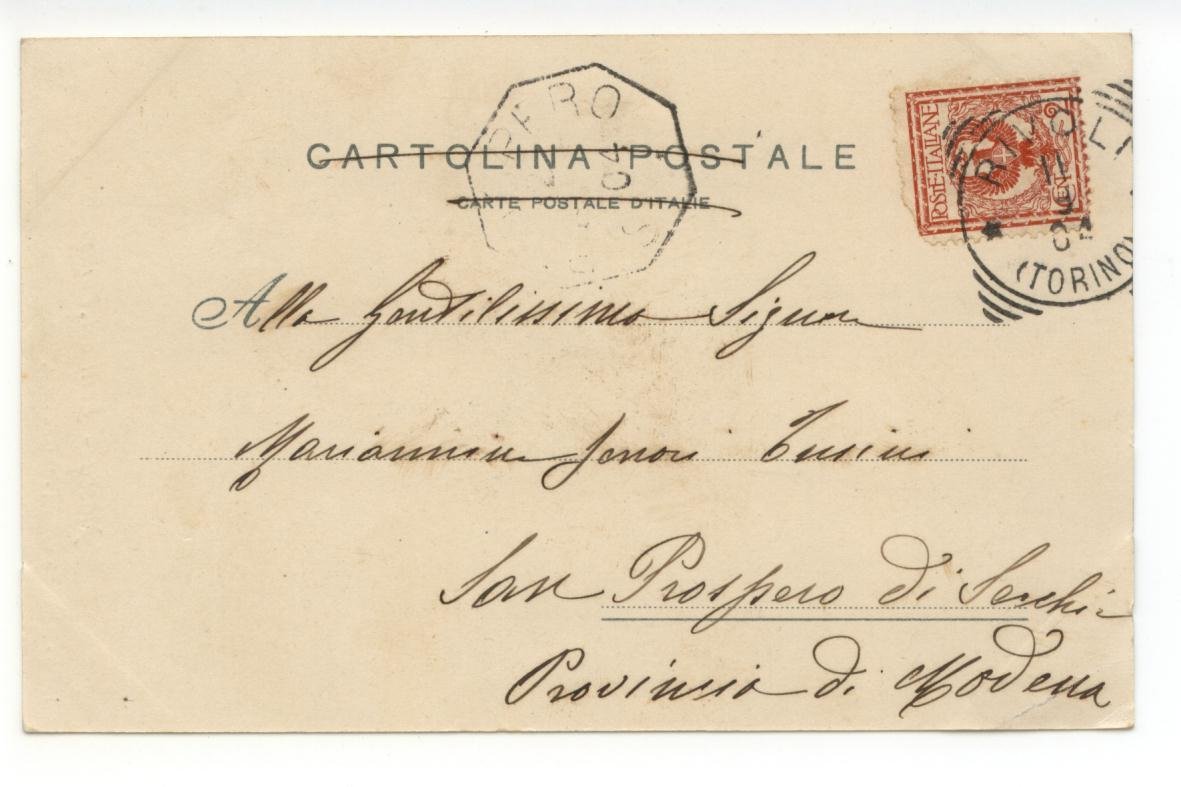 CARTOLINA POSTALE
CARTE POSTALE D'ITALIE
POSTE ITALIANE
RIVOLI
11
04
(TORINO)
PERO
04
Alla Gentilissima Signora
Mariannina Tusini
San Prospero di Secchia
Provincia di Modena